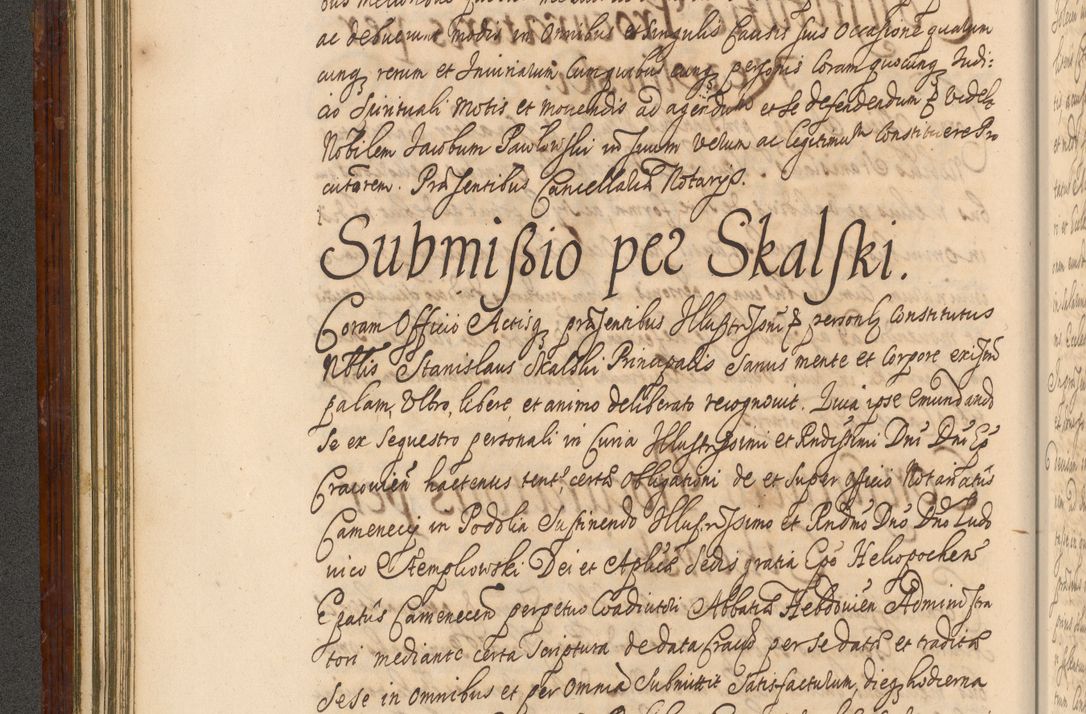 ac debuerunt modis in Omnibus et Singulis Causis suis Occasione qualium
cunq₃ rerum et Iniuriarum cum quibus cunq₃ personis Coram quocunq₃ Judi:
cio Spirituali motis et movendis ad agendum et se defendendum &
Nobilem Jacobum Pawłowski in suum verum ac legitimum Constituere Pro
curatorem. Præsentibus Cancellariæ Notarijs.
Submißio per Skalski.
Coram Officio Actisq₃ præsentibus Illustrissimi & personlr Constitutus
Nblis Stanislaus Skalski Principalis Sanus mente et Corpore existens
palam, Ultro, libere, et animo deliberato recognovit. Quia ipse emundando
se ex Sequestro personali in Curia Illustrissimi et Rndissimi Dni Dni Epi
Cracovien hactenus tent, certæ Obligationi de et super Officio Notariatus
Camenecy in Podolia Sustinendo Illustrissimo et Rndmo Dno Dno Ludo
vico Stempkowski Dei et Aplicæ Sedis gratia Epo Heliopochens
Epatus Camenecen perpetuo Coadiutori Abbatiæ Hebdovien Administra
tori mediante certa Scriptura de data Cracov per se data et tradita
sese in Omnibus et per Omnia Submittit Satisfacturum, dieq₃ hodierna